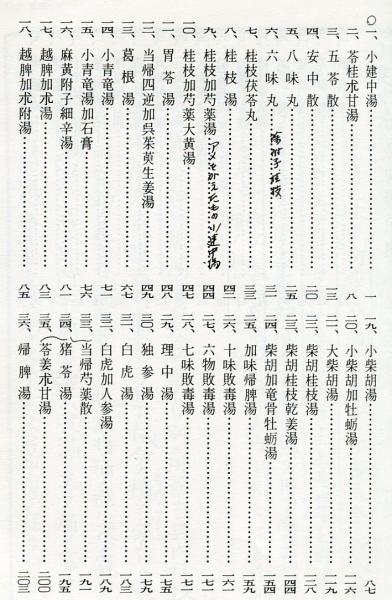 一、小建中湯…………一
二、苓桂朮甘湯…………八
三、五苓散…………
四、安中散…………二〇
五、八味丸…………
六、六味丸…………三一
除附子桂枝
七、桂枝茯苓丸…………三五
八、桂枝湯…………
九、桂枝加芍薬湯…………四四
小建中湯
一〇、桂枝加芍薬大黄湯…………
一一、胃苓湯…………四八
一二、当帰四逆加呉茱萸生姜湯…………四九
一三、葛根湯…………六七
一四、小青竜湯…………七三
一五、小青竜湯加石膏…………七六
一六、麻黄附子細辛湯…………八一
一七、越脾加朮湯…………八三
一八、越脾加朮附湯…………八五
一九、小柴胡湯…………八七
二〇、小柴胡加牡蛎湯…………一〇六
二一、大柴胡湯…………一〇九
二二、柴胡桂枝湯…………一二八
二三、柴胡桂枝乾姜湯…………一四四
二四、柴胡加竜骨牡蛎湯…………一五四
二五、加味帰脾湯…………一五九
二六、十味敗毒湯…………一六一
二七、六物敗毒湯…………一七一
二八、七味敗毒湯…………一七一
二九、理中湯…………一七五
三〇、独参湯…………一七九
三一、白虎湯…………一八三
三二、白虎加人参湯…………一八九
三三、当帰芍薬散…………一九一
三四、猪苓湯…………一九五
三五、苓姜朮甘湯…………二〇〇
三六、帰脾湯…………二〇三